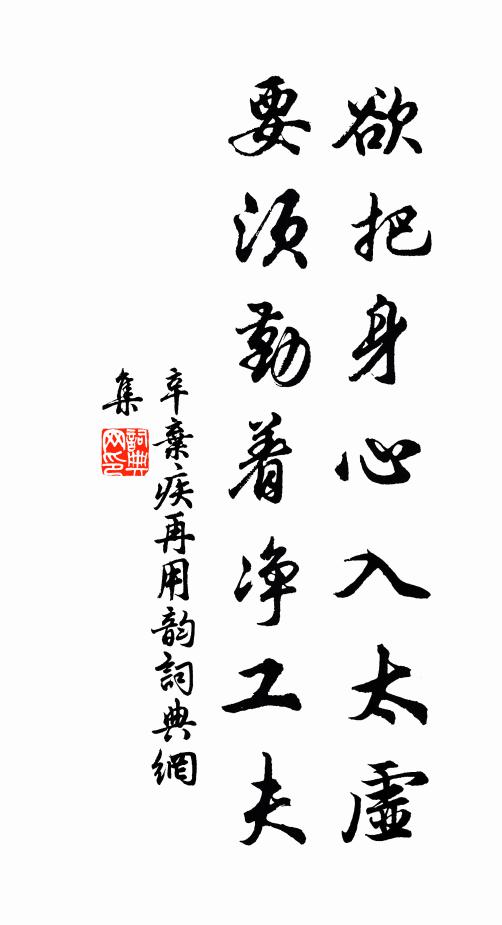 欲把身心入太虚
要须勤着净工夫
辛棄疾再用韵詞典網
集
詞典
网印